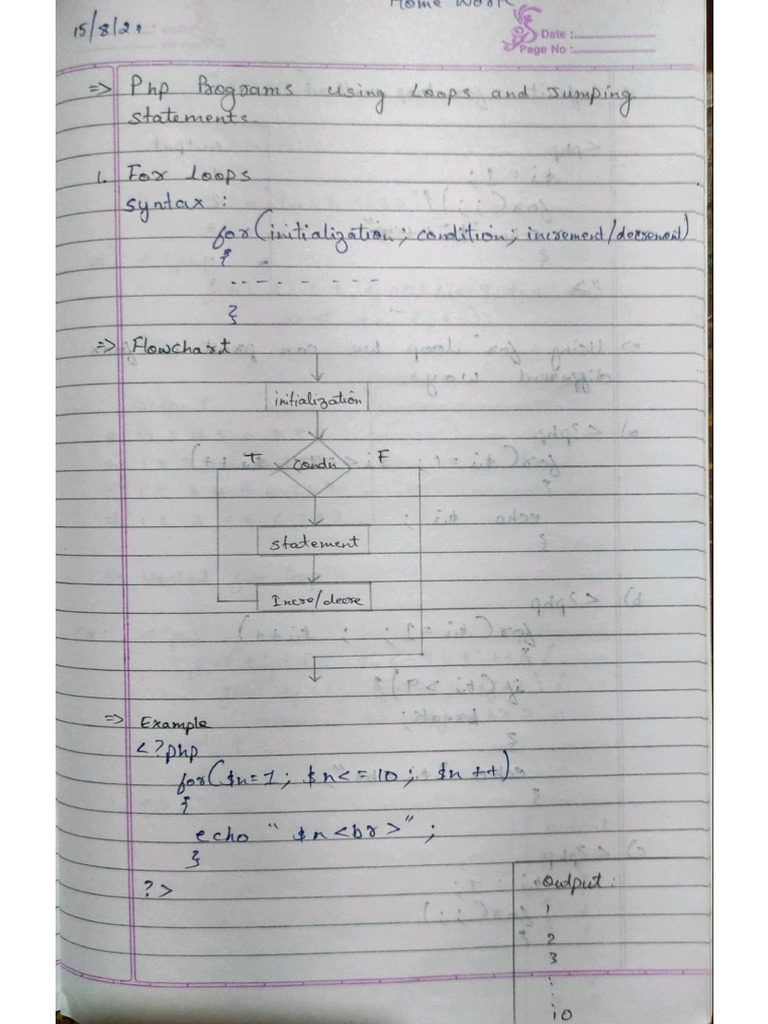 Home Work
15/8/21
Date :
Page No :
=> Php Programs using Loops and Jumping
statements.
1. For loops
syntax :
for(initialization; condition; increment/decrement)
{
-- - - - - - -
}
=> Flowchart
initialization
T Condn F
statement
Incre/decre
=> Example
<?php
for($n=1; $n<=10; $n++)
{
echo " $n<br>";
}
?>
Output:
1
2
3
:
10